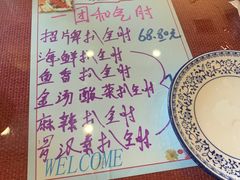 一团和气肘
招牌扒全肘 68.80元
海鲜扒全肘
鱼香扒全肘
金汤酸菜扒全肘
麻辣扒全肘
冒汉菜扒全肘
WELCOME